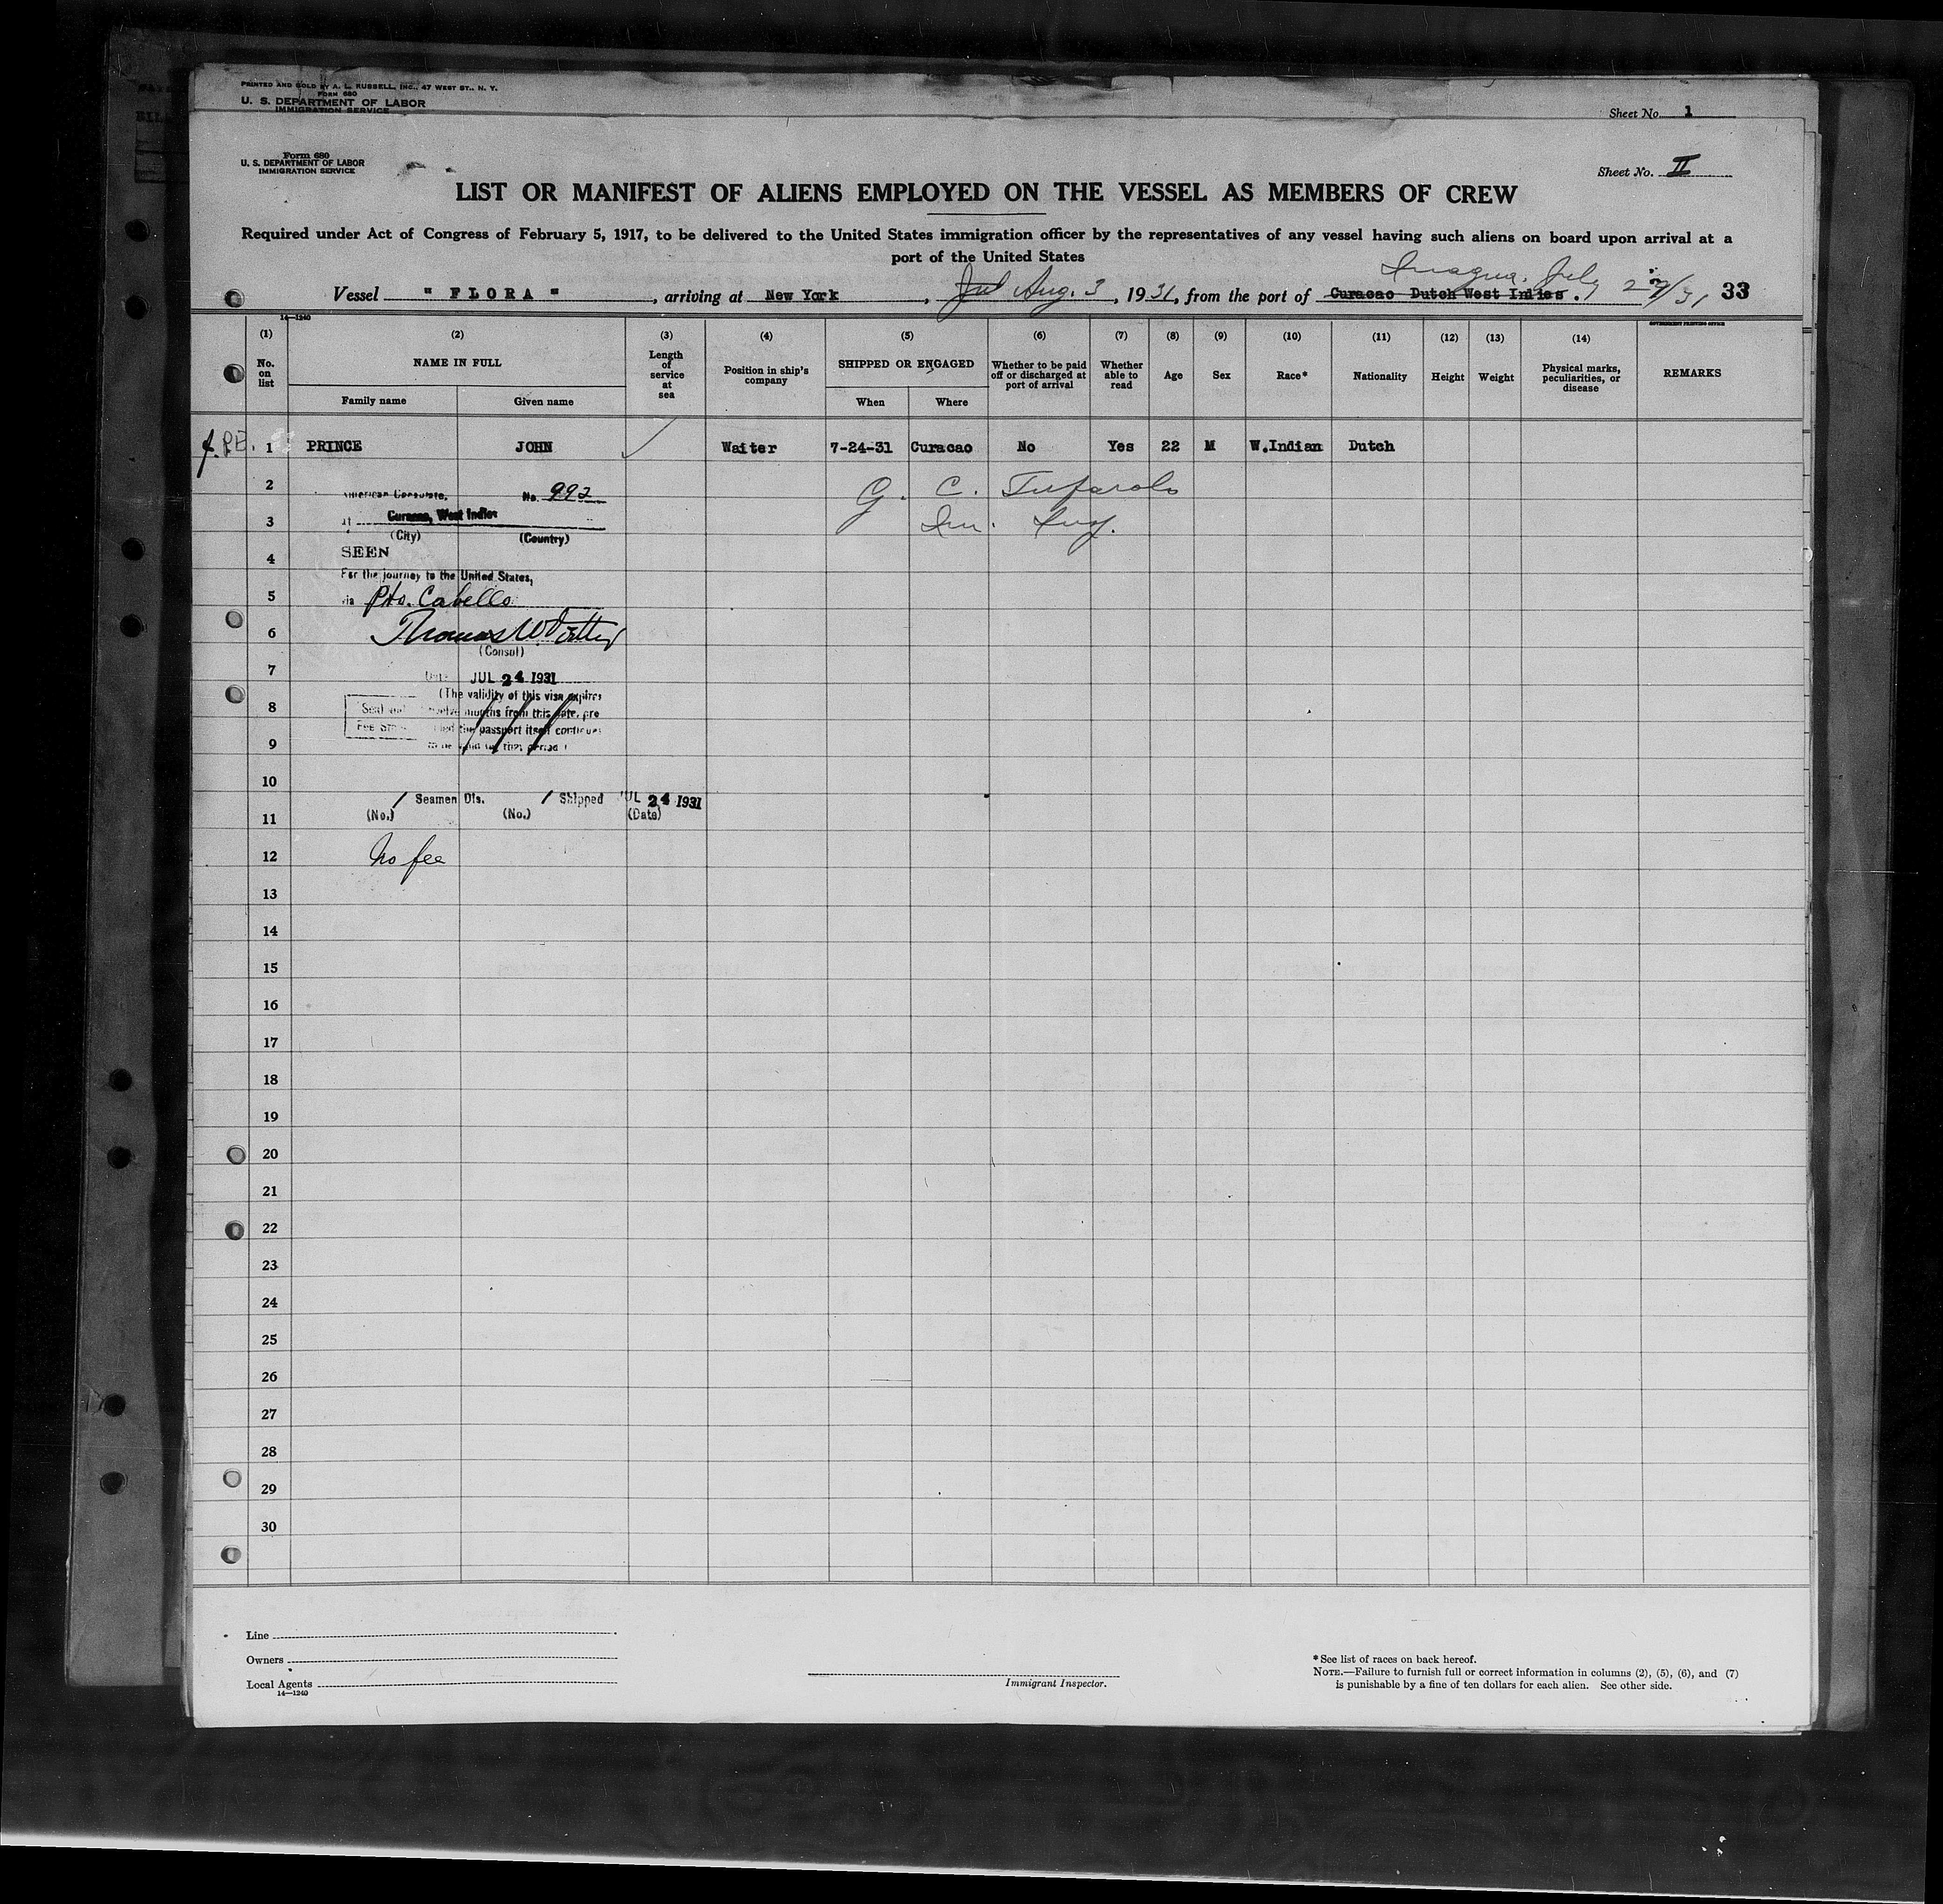 PRINTED AND SOLD BY A. L. RUSSELL, INC., 47 WEST ST., N. Y.
FORM 680
U. S. DEPARTMENT OF LABOR
IMMIGRATION SERVICE
Sheet No. 1
Form 680
U. S. DEPARTMENT OF LABOR
IMMIGRATION SERVICE
Sheet No. II
LIST OR MANIFEST OF ALIENS EMPLOYED ON THE VESSEL AS MEMBERS OF CREW
Required under Act of Congress of February 5, 1917, to be delivered to the United States immigration officer by the representatives of any vessel having such aliens on board upon arrival at a
port of the United States
Inagua, July 29/31
Vessel "FLORA", arriving at New York, Jul Aug. 3, 1931, from the port of Curacao Dutch West Indies. 33
14—1240
GOVERNMENT PRINTING OFFICE
(1) (2) (3) (4) (5) (6) (7) (8) (9) (10) (11) (12) (13) (14)
No. on list NAME IN FULL Length of service at sea Position in ship's company SHIPPED OR ENGAGED Whether to be paid off or discharged at port of arrival Whether able to read Age Sex Race* Nationality Height Weight Physical marks, peculiarities, or disease REMARKS
Family name Given name When Where
1 PRINCE JOHN Waiter 7-24-31 Curacao No Yes 22 M W.Indian Dutch
2 American Consulate, No. 992 G. C.
3 At Curacao, West Indies Im. Insp.
(City) (Country)
4 SEEN
For the journey to the United States,
5 via Pto. Cabello
6 Thomas W.
(Consul)
7 Date JUL 24 1931
(The validity of this visa expires
8 twelve months from this date, pro
Fee the passport itself continues
9 to be valid for that period)
10
/ Seamen Dis. / Shipped JUL 24 1931
11 (No.) (No.) (Date)
12 No fee
13
14
15
16
17
18
19
20
21
22
23
24
25
26
27
28
29
30
Line
Owners
Local Agents
14—1240
Immigrant Inspector.
*See list of races on back hereof.
NOTE.—Failure to furnish full or correct information in columns (2), (5), (6), and (7)
is punishable by a fine of ten dollars for each alien. See other side.